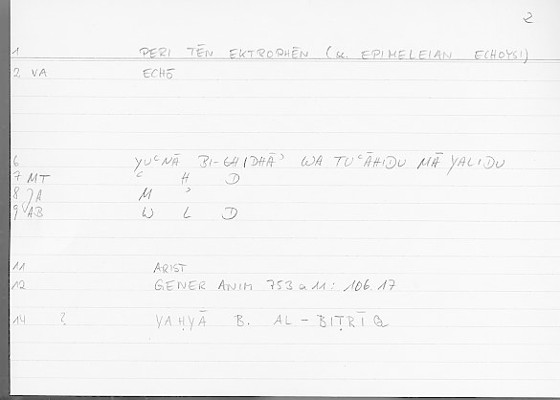 2
1 PERI TĒN EKTROPHĒN (u. EPIMELEIAN ECHOYSI)
2 VA ECHŌ
6 YUʿNĀ BI-GHIDHĀʾ WA TUʿĀHIDU MĀ YALIDU
7 MT ʿ H D
8 JA M ʾ
9 AB W L D
11 ARIST
12 GENER ANIM 753 a 11: 106.17
14 2 YAḤYĀ B. AL-BIṬRĪQ